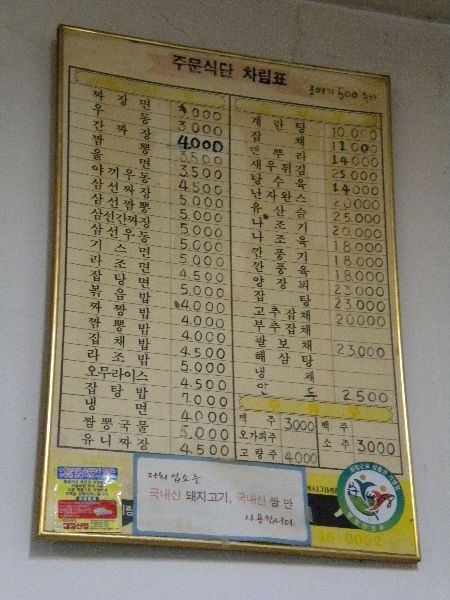 주문식단 차림표
곱빼기 500 추가
짜장면 3,000
우동 3,000
간짜장 4,000
짬뽕 3,500
울면 3,500
야끼우동 4,500
삼선짜장 5,000
삼선짬뽕 5,000
삼선간짜장 5,000
삼선우동 5,000
기스면 5,000
라조면 5,000
잡탕밥 4,500
볶음밥 4,000
짜장밥 4,000
짬뽕밥 4,000
잡채밥 4,000
라조밥 4,500
오무라이스 4,500
잡탕밥 7,000
냉면 4,000
짬뽕국물 5,000
유니짜장 4,500
계란탕 10,000
잡채
덴뿌라 14,000
새우튀김 25,000
탕수육 14,000
난자완스 20,000
유산슬 25,000
라조기 18,000
라조육 18,000
깐풍기 18,000
깐풍육 18,000
양장피 23,000
잡탕 23,000
고추잡채 20,000
부추잡채
팔보채 23,000
해삼탕
냉채
만두 2,500
맥주 3000
맥주
오가피주
소주 3000
고량주 4,000
저희 업소는
국내산 돼지고기, 국내산 쌀 만
사용합니다.